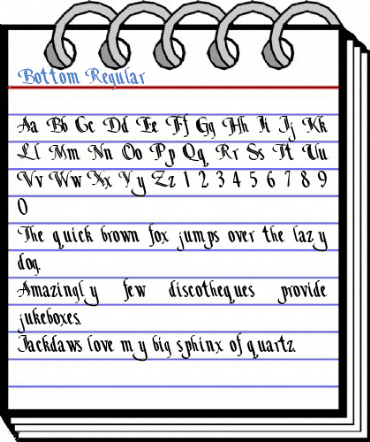 Bottom Regular
Aa Bb Cc Dd Ee Ff Gg Hh Ii Jj Kk
Ll Mm Nn Oo Pp Qq Rr Ss Tt Uu
Vv Ww Xx Yy Zz 1 2 3 4 5 6 7 8 9
0
The quick brown fox jumps over the lazy
dog.
Amazingly few discotheques provide
jukeboxes.
Jackdaws love my big sphinx of quartz.